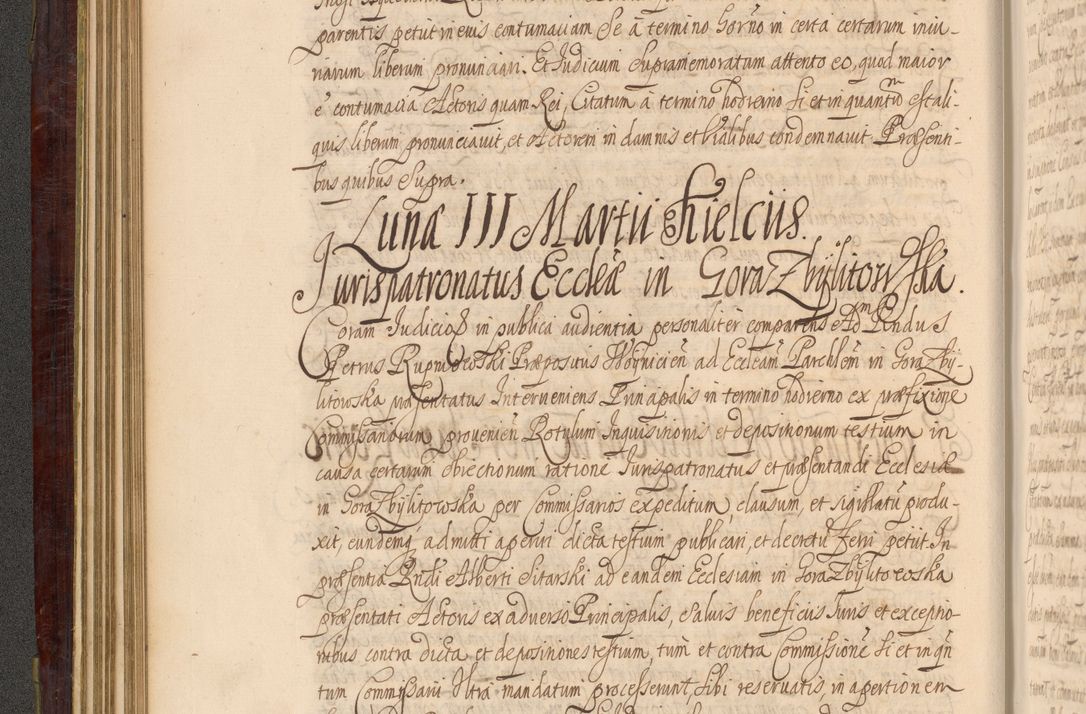 parentis petut in eius contumaciam se à termino horno in certa certarum iniu-
riarum liberum pronunciari. Et Iudicium supramemoratum attento eo, quod maior
e contumacia Actoris quam Rei, Citatum à termino hodierno si et in quantum est ali-
quis liberum pronunciavit, et Actorem in damnis et litalibus condemnavit Præsenti-
bus quibus supra.
Luna III Martii Kielciis.
Iurispatronatus Eccleæ in Gora Zbÿlitowska.
Coram Iudicio in publica audientia personaliter comparens Adm Rndus
Petrus Rupniewski Præpositus Woynicien ad Ecclam Parchlem in Gora Zbÿ-
litowska præsentatus Interveniens Principalis in termino hodierno ex præfixione
Commissariorum provenien Rotulum Inquisitionis et depositionum testium in
causa certarum obiectionum ratione Iurispatronatus et præsentandi Ecclesiæ
in Gora Zbÿlitowska per Commissarios expeditum, clausum, et sigillatū produ-
xit, eundemq admitti aperiri dicta testium publicari, et decretū ferri petiit. In
præsentia Rndi Alberti Sitarski ad eandem Ecclesiam in Gora Zbÿlitowska
præsentati Actoris ex adverso Principalis, salvis beneficiis Iuris et exceptio-
nibus contra dicta et depositiones testium, tum et contra Commissione si et in qn
tum Commissarii Ultra mandatum processerunt sibi reservatis, in apertionem